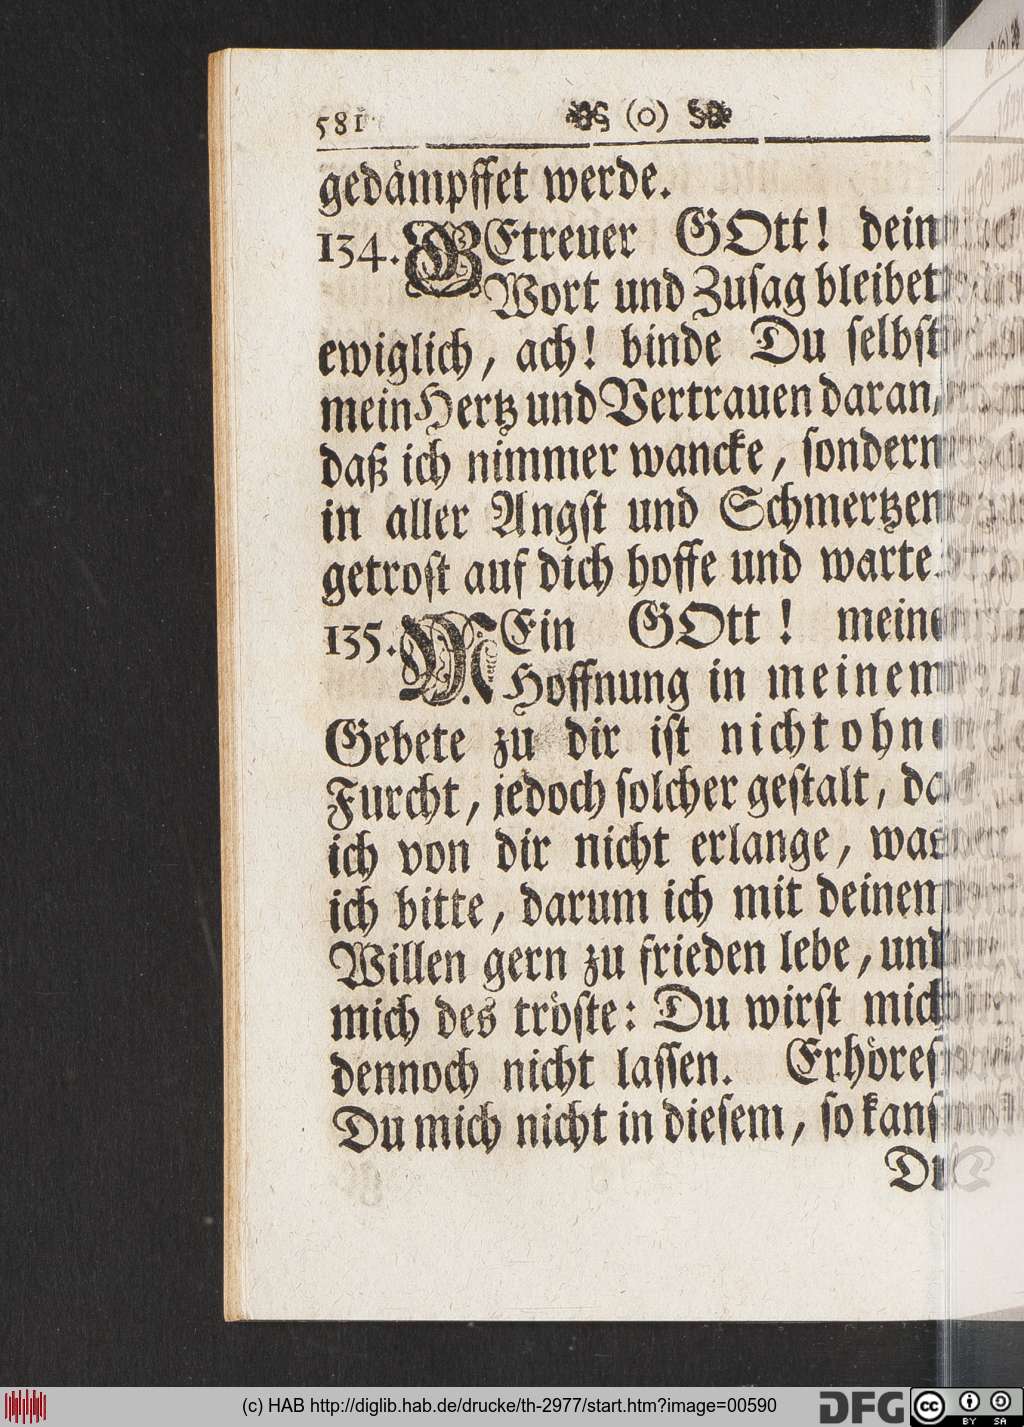 581 (o)
gedämpffet werde.
134. GEtreuer GOtt! dein
Wort und Zusag bleibet
ewiglich, ach! binde Du selbst
mein Hertz und Vertrauen daran,
daß ich nimmer wancke, sondern
in aller Angst und Schmertzen
getrost auf dich hoffe und warte.
135. MEin GOtt! meine
Hoffnung in meinem
Gebete zu dir ist nicht ohne
Furcht, jedoch solcher gestalt, da
ich von dir nicht erlange, was
ich bitte, darum ich mit deinem
Willen gern zu frieden lebe, und
mich des tröste: Du wirst mich
dennoch nicht lassen. Erhörest
Du mich nicht in diesem, so kanst
Du
(c) HAB http://diglib.hab.de/drucke/th-2977/start.htm?image=00590
DFG
cc BY SA